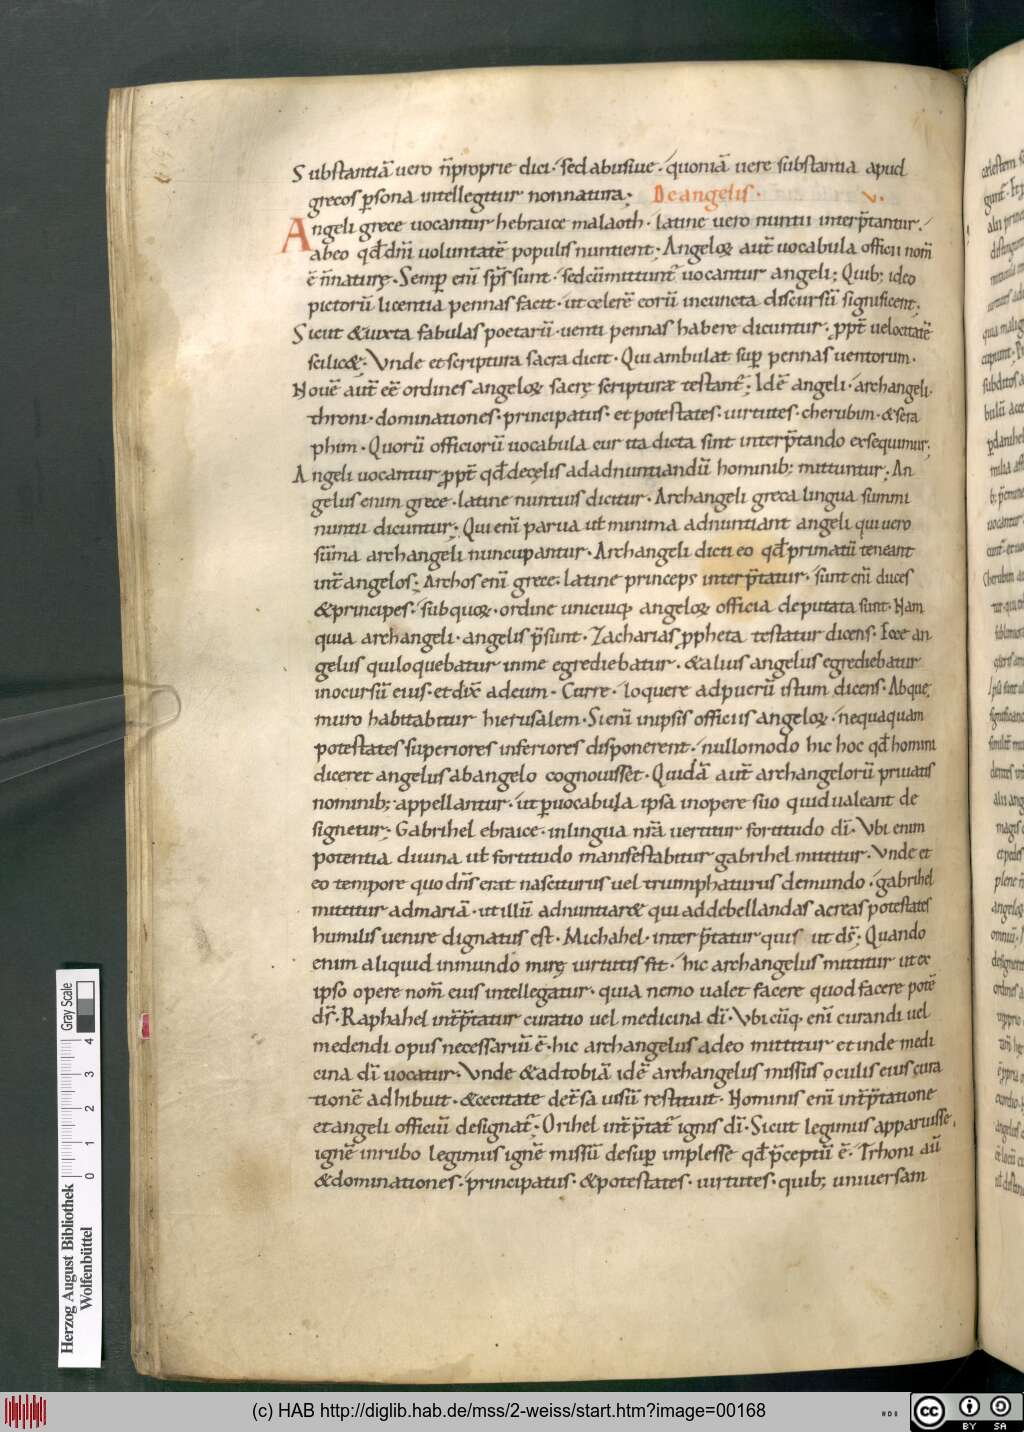 Substantiā uero ñproprie dici · sed abusiue · quoniā uere substantia apud
grecos ꝑsona intellegitur non natura; De angelis · V.
Angeli grece uocantur hebraice malaoth · latine uero nuntii interp̄tantur ·
ab eo qđ dn̄i uoluntatē populis nuntient; Angeloꝝ aut̄ uocabula officii nom̄
ē n̄naturę · Semꝑ eni̅ sp̄s sunt · sed cū mittunt᷑ uocantur angeli; Quib; ideo
pictorū licentia pennas facit · ut celerē eorū in cuncta discursū significent;
Sicut & iuxta fabulas poetarū · uenti pennas habere dicuntur · ꝓpt̄ uelocitatē
scilic&; Vnde et scriptura sacra dicit · Qui ambulat suꝑ pennas uentorum ·
Nouē aut̄ eē ordines angeloꝝ sacrę scripturæ testant᷑; Idē angeli · archangeli ·
throni · dominationes · principatus · et potestates · uirtutes · cherubim · & sera
phim · Quorū officiorū uocabula cur ita dicta sint interp̄tando exsequimur;
Angeli uocantur ꝓpt̄ qđ de cęlis ad adnuntiandū hominib; mittuntur; An
gelus enim grece · latine nuntius dicitur · Archangeli greca lingua summi
nuntii dicuntur; Qui eni̅ parua uł minima adnuntiant angeli qui uero
sūma archangeli nuncupantur · Archangeli dicti eo qđ primatū teneant
int̄ angelos; Archos eni̅ grece · latine princeps interp̄tatur · sunt eni̅ duces
& principes · sub quoꝝ · ordine unicuiqꝫ angeloꝝ officia deputata sunt · Nam
quia archangeli · angelis p̄sunt · Zacharias ꝓpheta testatur dicens · Ecce an
gelus qui loquebatur in me egrediebatur · & alius angelus egrediebatur
in ocursū eius · et dix̄ ad eum · Curre · loquere ad puerū istum dicens · Absque
muro habitabitur hierusalem · Si eni̅ in ipsis officiis angeloꝝ · nequaquam
potestates superiores inferiores disponerent · nullomodo hic hoc qđ homini
diceret angelus ab angelo cognouisset · Quidā aut̄ archangelorū priuatis
nominib; appellantur · ut ꝑ uocabula ipsa in opere suo quid ualeant de
signetur; Gabrihel ebraice · in lingua nr̄a uertitur fortitudo dī · Vbi enim
potentia diuina uł fortitudo manifestabitur gabrihel mittitur · Vnde et
eo tempore quo dn̄s erat nasciturus uel triumphaturus de mundo · gabrihel
mittitur ad mariā · ut illū adnuntiar& qui ad debellandas aereas potestates
humilis uenire dignatus est · Michahel · interp̄tatur quis ut ds̄; Quando
enim aliquid in mundo mirę uirtutis fit · hic archangelus mittitur ut ex
ipso opere nom̄ eius intellegatur · quia nemo ualet facere quod facere potē
ds̄ · Raphahel int̄p̄tatur curatio uel medicina dī · Vbicūqꝫ eni̅ curandi uel
medendi opus necessariū ē · hic archangelus a deo mittitur et inde medi
cina dī uocatur · Vnde & ad tobiā idē archangelus missus oculis eius cura
tionē adhibuit · & cecitate det̄sa uisū restituit · Nominis eni̅ int̄p̄tatione
et angeli officiū designat᷑; Orihel int̄p̄tat᷑ ignis dī · Sicut legimus apparuisse
ignē in rubo legimus ignē missū desuꝑ implesse qđ p̄ceptū ē · Trhoni aū
& dominationes · principatus · & potestates · uirtutes · quib; uniuersam
Gray Scale
0 1 2 3 4
Herzog August Bibliothek
Wolfenbüttel
(c) HAB http://diglib.hab.de/mss/2-weiss/start.htm?image=00168
cc BY SA